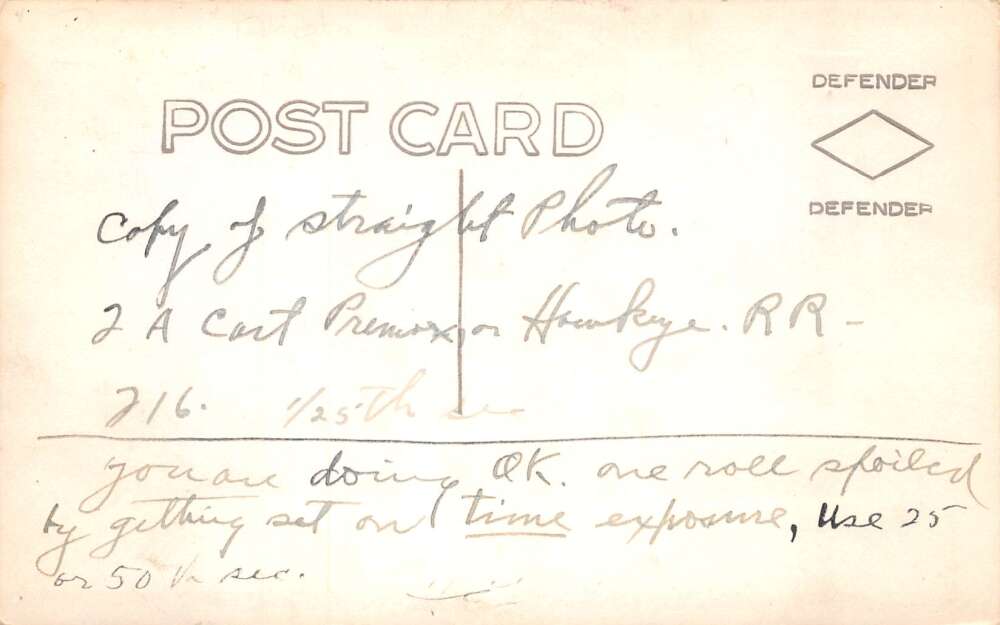 DEFENDER
POST CARD
DEFENDER
Copy of straight Photo.
2 A Cart Premo, or Hawkeye. RR -
F16. 1/25th sec
you are doing OK. one roll spoiled
by getting set on time exposure, Use 25
or 50th sec.